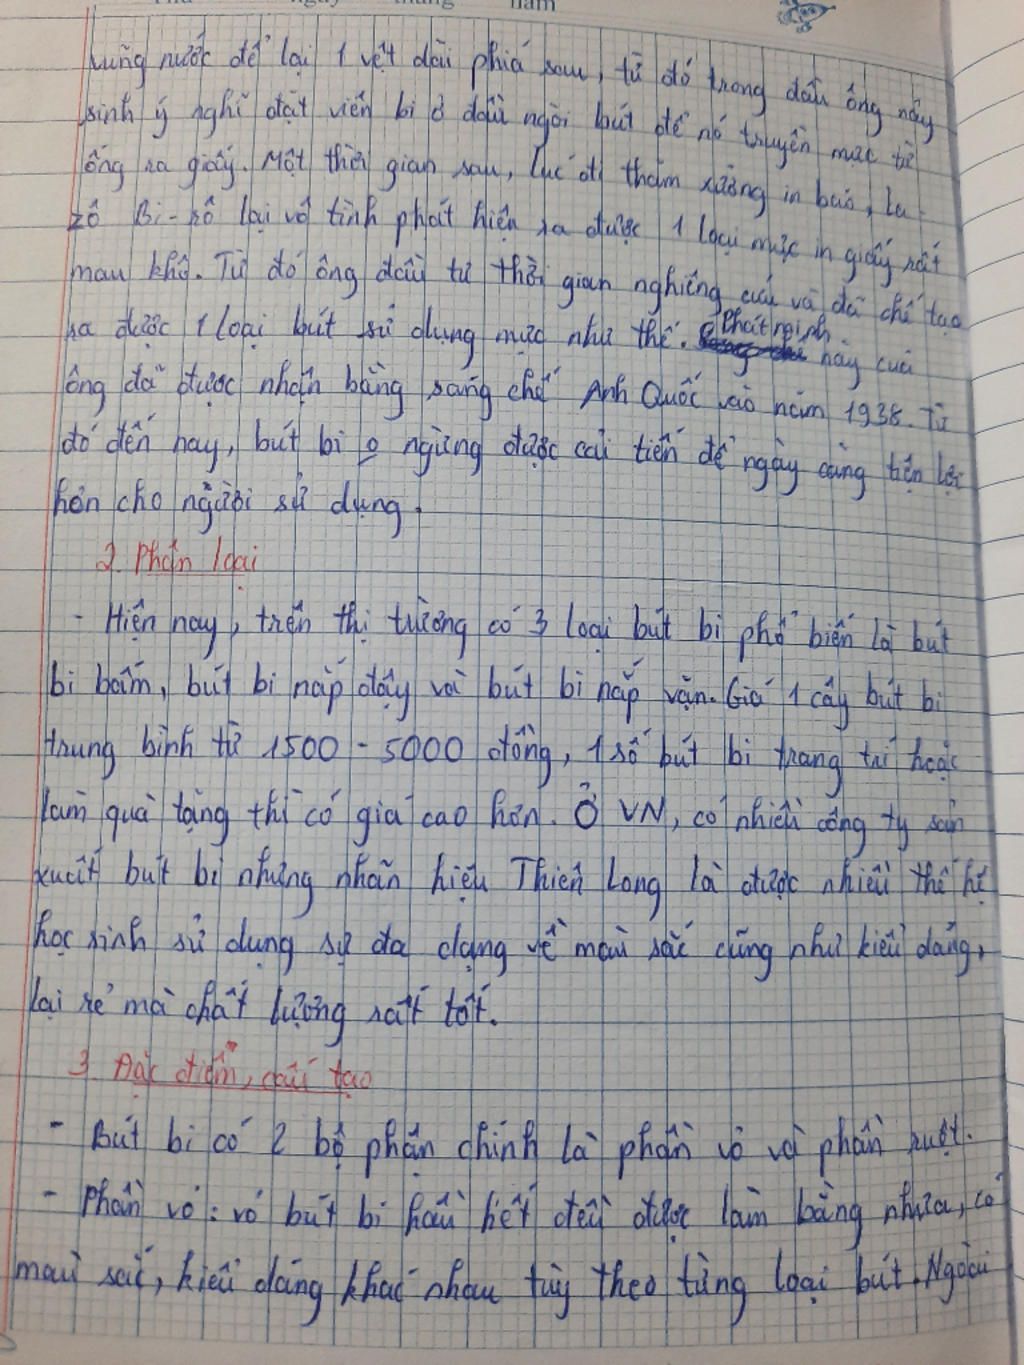 Thứ ngày tháng năm
vũng nước để lại 1 vệt dài phía sau, từ đó trong đầu ông nảy
sinh ý nghĩ đặt viên bi ở đầu ngòi bút để nó truyền mực từ
ống ra giấy. Một thời gian sau, lúc đi thăm xưởng in báo, La-
zô Bi-rô lại vô tình phát hiện ra được 1 loại mực in giấy rất
mau khô. Từ đó ông đầu tư thời gian nghiêng cứu và đã chế tạo
ra được 1 loại bút sử dụng mực như thế. Phát minh này của
ông đã được nhận bằng sáng chế Anh Quốc vào năm 1938. Từ
đó đến nay, bút bi o ngừng được cải tiến để ngày càng tiện lợi
hơn cho người sử dụng.
2. Phân loại
- Hiện nay, trên thị trường có 3 loại bút bi phổ biến là bút
bi bấm, bút bi nắp đậy và bút bi nắp vặn. Giá 1 cây bút bi
trung bình từ 1500 - 5000 đồng, 1 số bút bi trang trí hoặc
làm quà tặng thì có giá cao hơn. Ở VN, có nhiều công ty sản
xuất bút bi nhưng nhãn hiệu Thiên Long là được nhiều thế hệ
học sinh sử dụng sự đa dạng về màu sắc cũng như kiểu dáng,
lại rẻ mà chất lượng rất tốt.
3. Đặc điểm, cấu tạo
- Bút bi có 2 bộ phận chính là phần vỏ và phần ruột.
- Phần vỏ: vỏ bút bi hầu hết đều được làm bằng nhựa, có
màu sắc, kiểu dáng khác nhau tùy theo từng loại bút. Ngoài